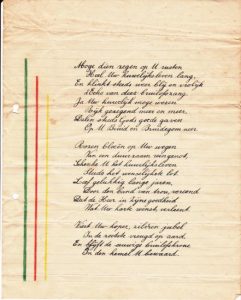 Moge dien zegen op U rusten
Heel Uw huwelijksleven lang,
En klinkt steeds weer blij en vroolijk
d'Echo van deez' bruiloftszang.
Ja Uw huwelijk moge wezen
Rijk gezegend meer en meer,
Dalen steeds Gods goede gaven
Op U Bruid en Bruidegom neer.
Rozen bloeien op Uw wegen
Van een duurzaam mingenot,
Schenke U het huwelijksleven
Steeds het wenschelijkste lot.
Leef gelukkig lange jaren,
Door den band van trouw vereend
Dat de Heer in Zijne goedheid
Wat Uw harte wenscht, verleent
Kiest Uw koper, zilvren jubel
In de reinste vreugd op aard,
En blijft de eeuwige bruiloftskrone
In den hemel U bewaard.